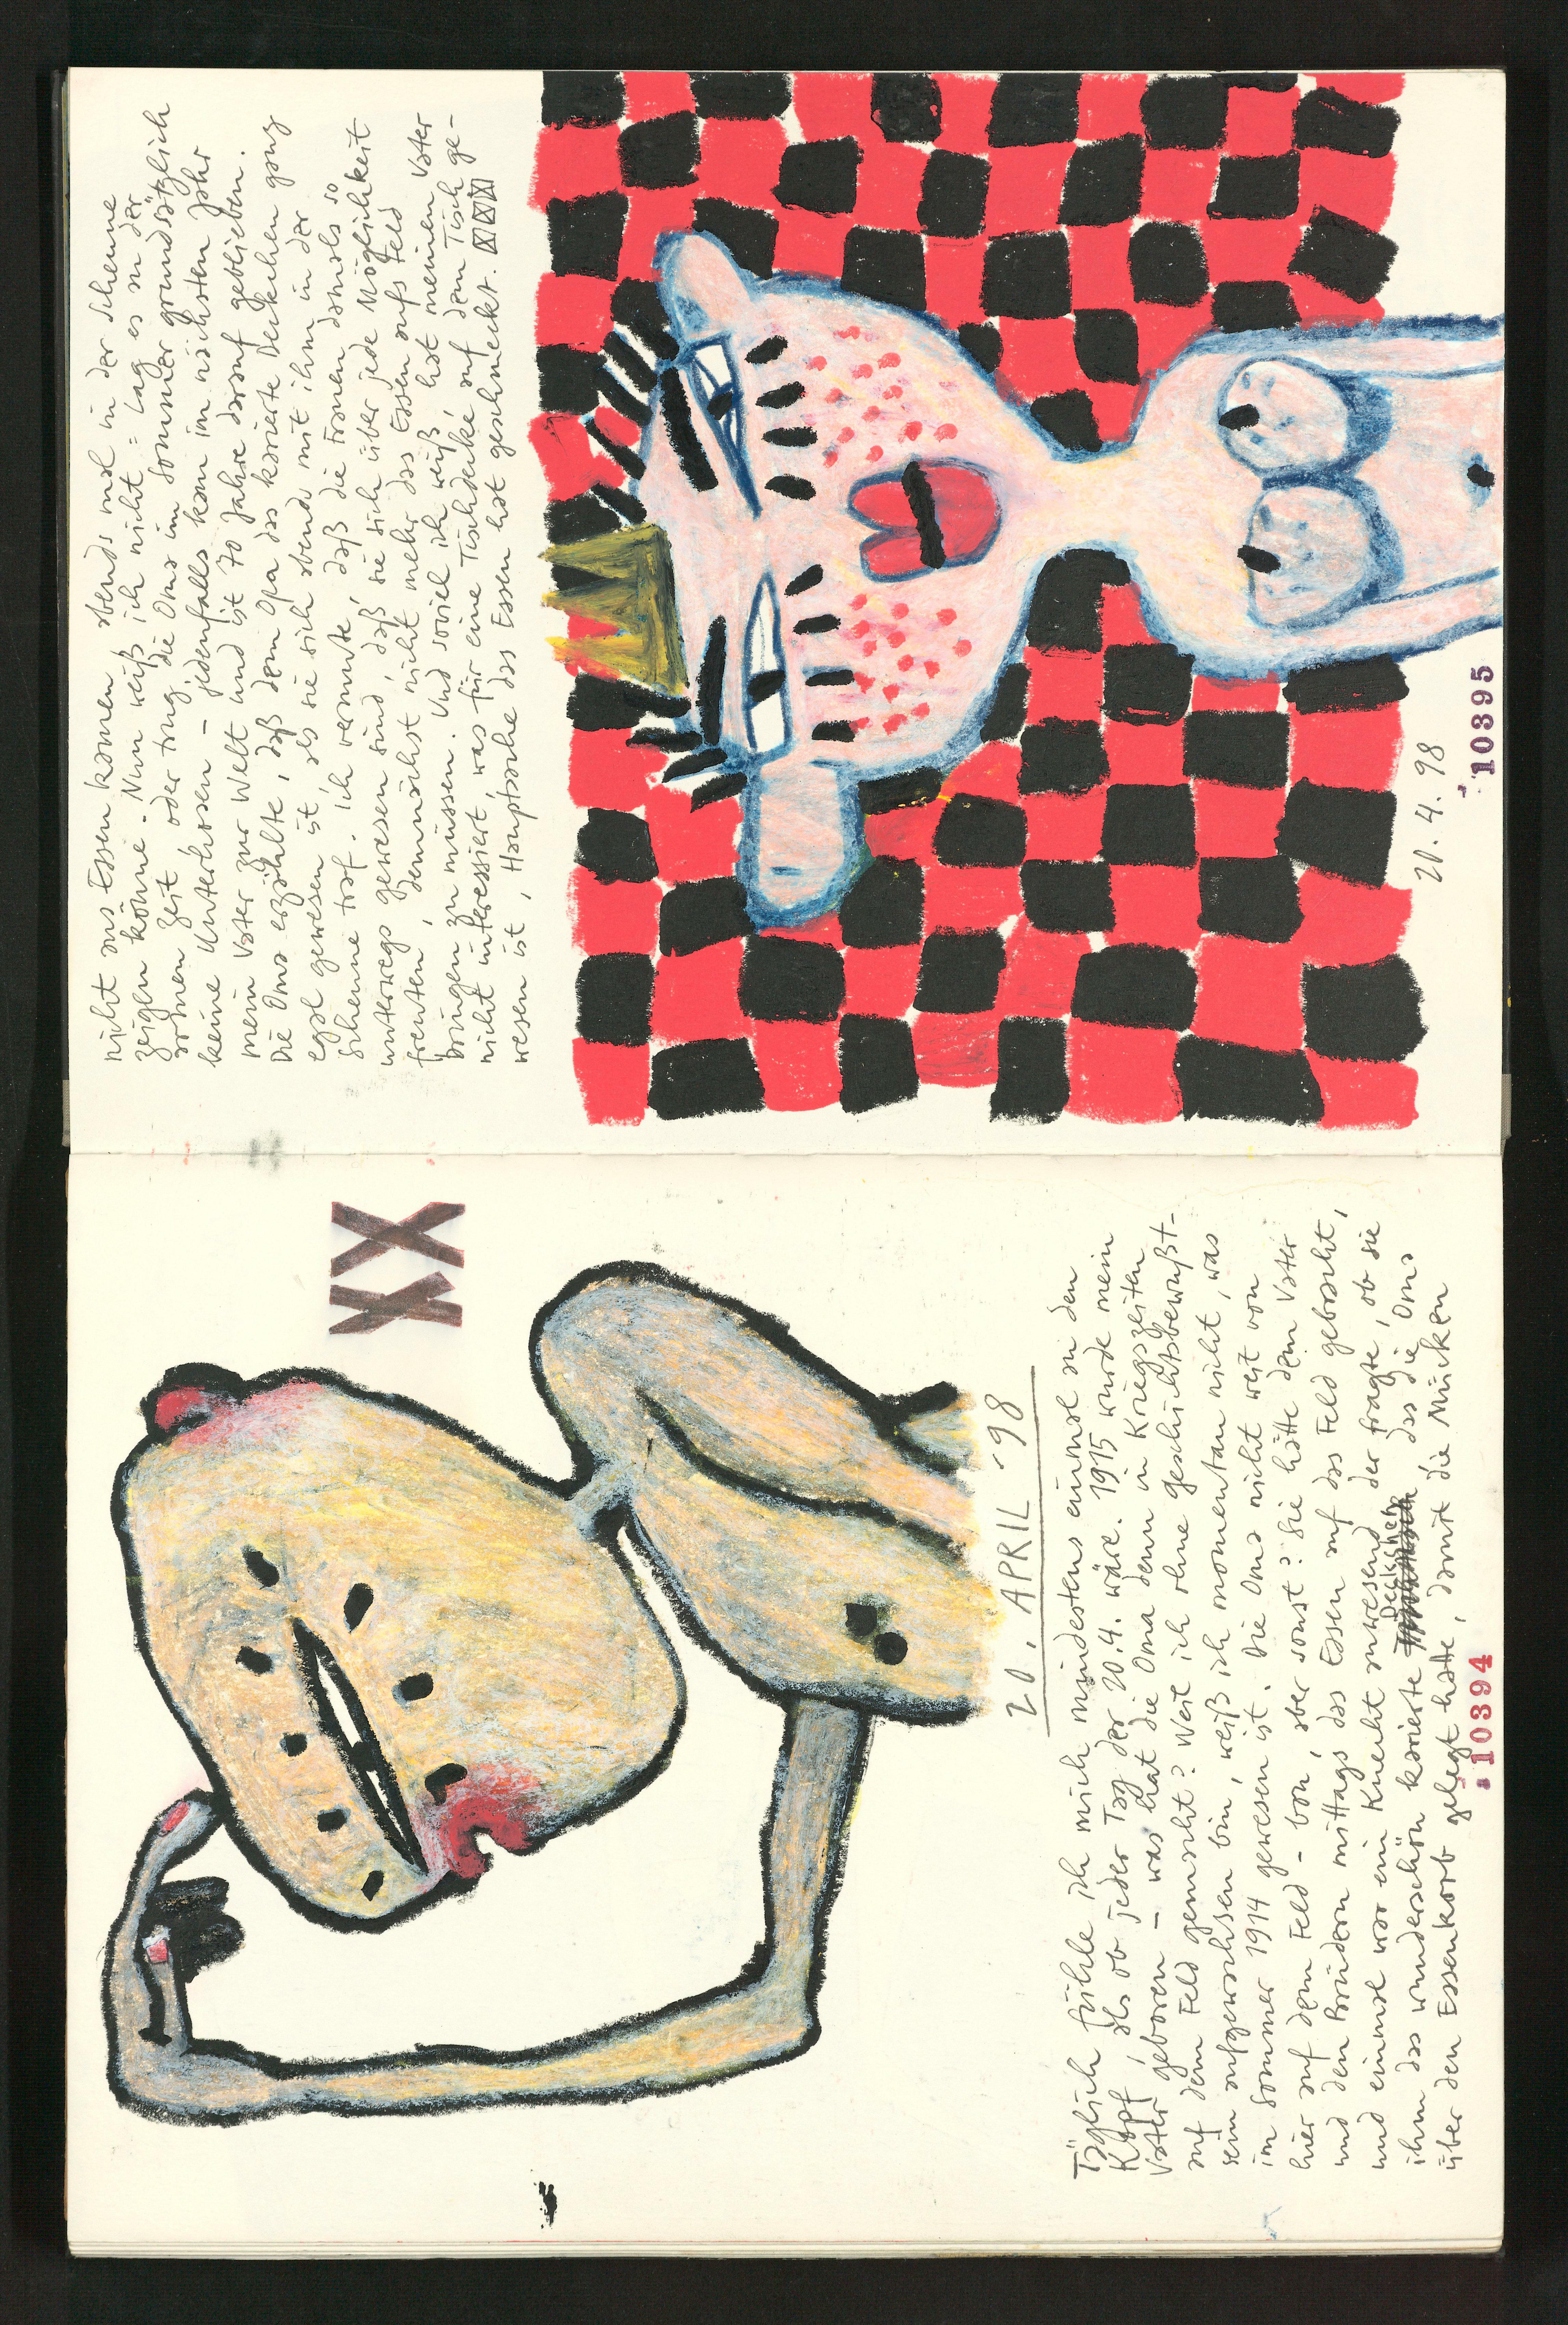 XX
20. APRIL '98
Täglich fühle ich mich mindestens einmal an den
Kopf, als ob jeder Tag der 20.4. wäre. 1915 wurde mein
Vater geboren – was hat die Oma denn in Kriegszeiten
auf dem Feld gemacht? Weil ich ohne geschichtsbewußt-
sein aufgewachsen bin, weiß ich momentan nicht, was
im Sommer 1914 gewesen ist. Die Oma nicht weit von
hier auf dem Feld – bon, aber sonst? Sie hätte dem Vater
und den Brüdern mittags das Essen auf das Feld gebracht,
und einmal war ein Knecht anwesend, der fragte, ob sie
ihm das wunderschön karierte Deckchen, das die Oma
über den Essenkorb gelegt hatte, damit die Mücken
10394
nicht ans Essen kamen, abends mal in der Scheune
zeigen könne. Nun weiß ich nicht: Lag es an der
armen Zeit oder trug die Oma im Sommer grundsätzlich
keine Unterhosen – jedenfalls kam im nächsten Jahr
mein Vater zur Welt und ist 70 Jahre darauf geblieben.
Die Oma erzählte, daß dem Opa das karierte Deckchen ganz
egal gewesen ist, als sie sich abends mit ihm in der
Scheune traf. Ich vermute, daß die Frauen damals so
unterwegs gewesen sind, daß sie sich über jede Möglichkeit
freuten, demnächst nicht mehr das Essen aufs Feld
bringen zu müssen. Und soviel ich weiß, hat meinen Vater
nicht interessiert, was für eine Tischdecke auf dem Tisch ge-
wesen ist, Hauptsache das Essen hat geschmeckt.
20.4.98
10395